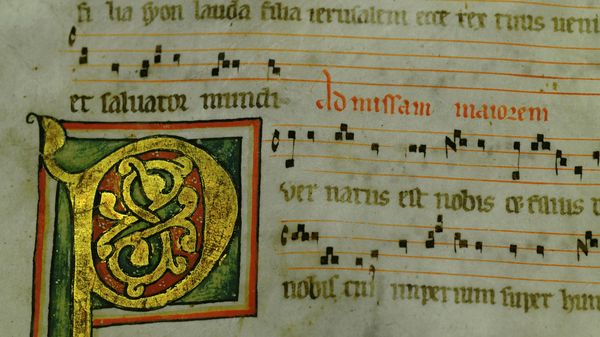 fi lia syon lauda filia ierusalem ecce rex tuus veni
et saluator mundi Ad missam maiorem
Puer natus est nobis et filius
nobis cui imperium super hum